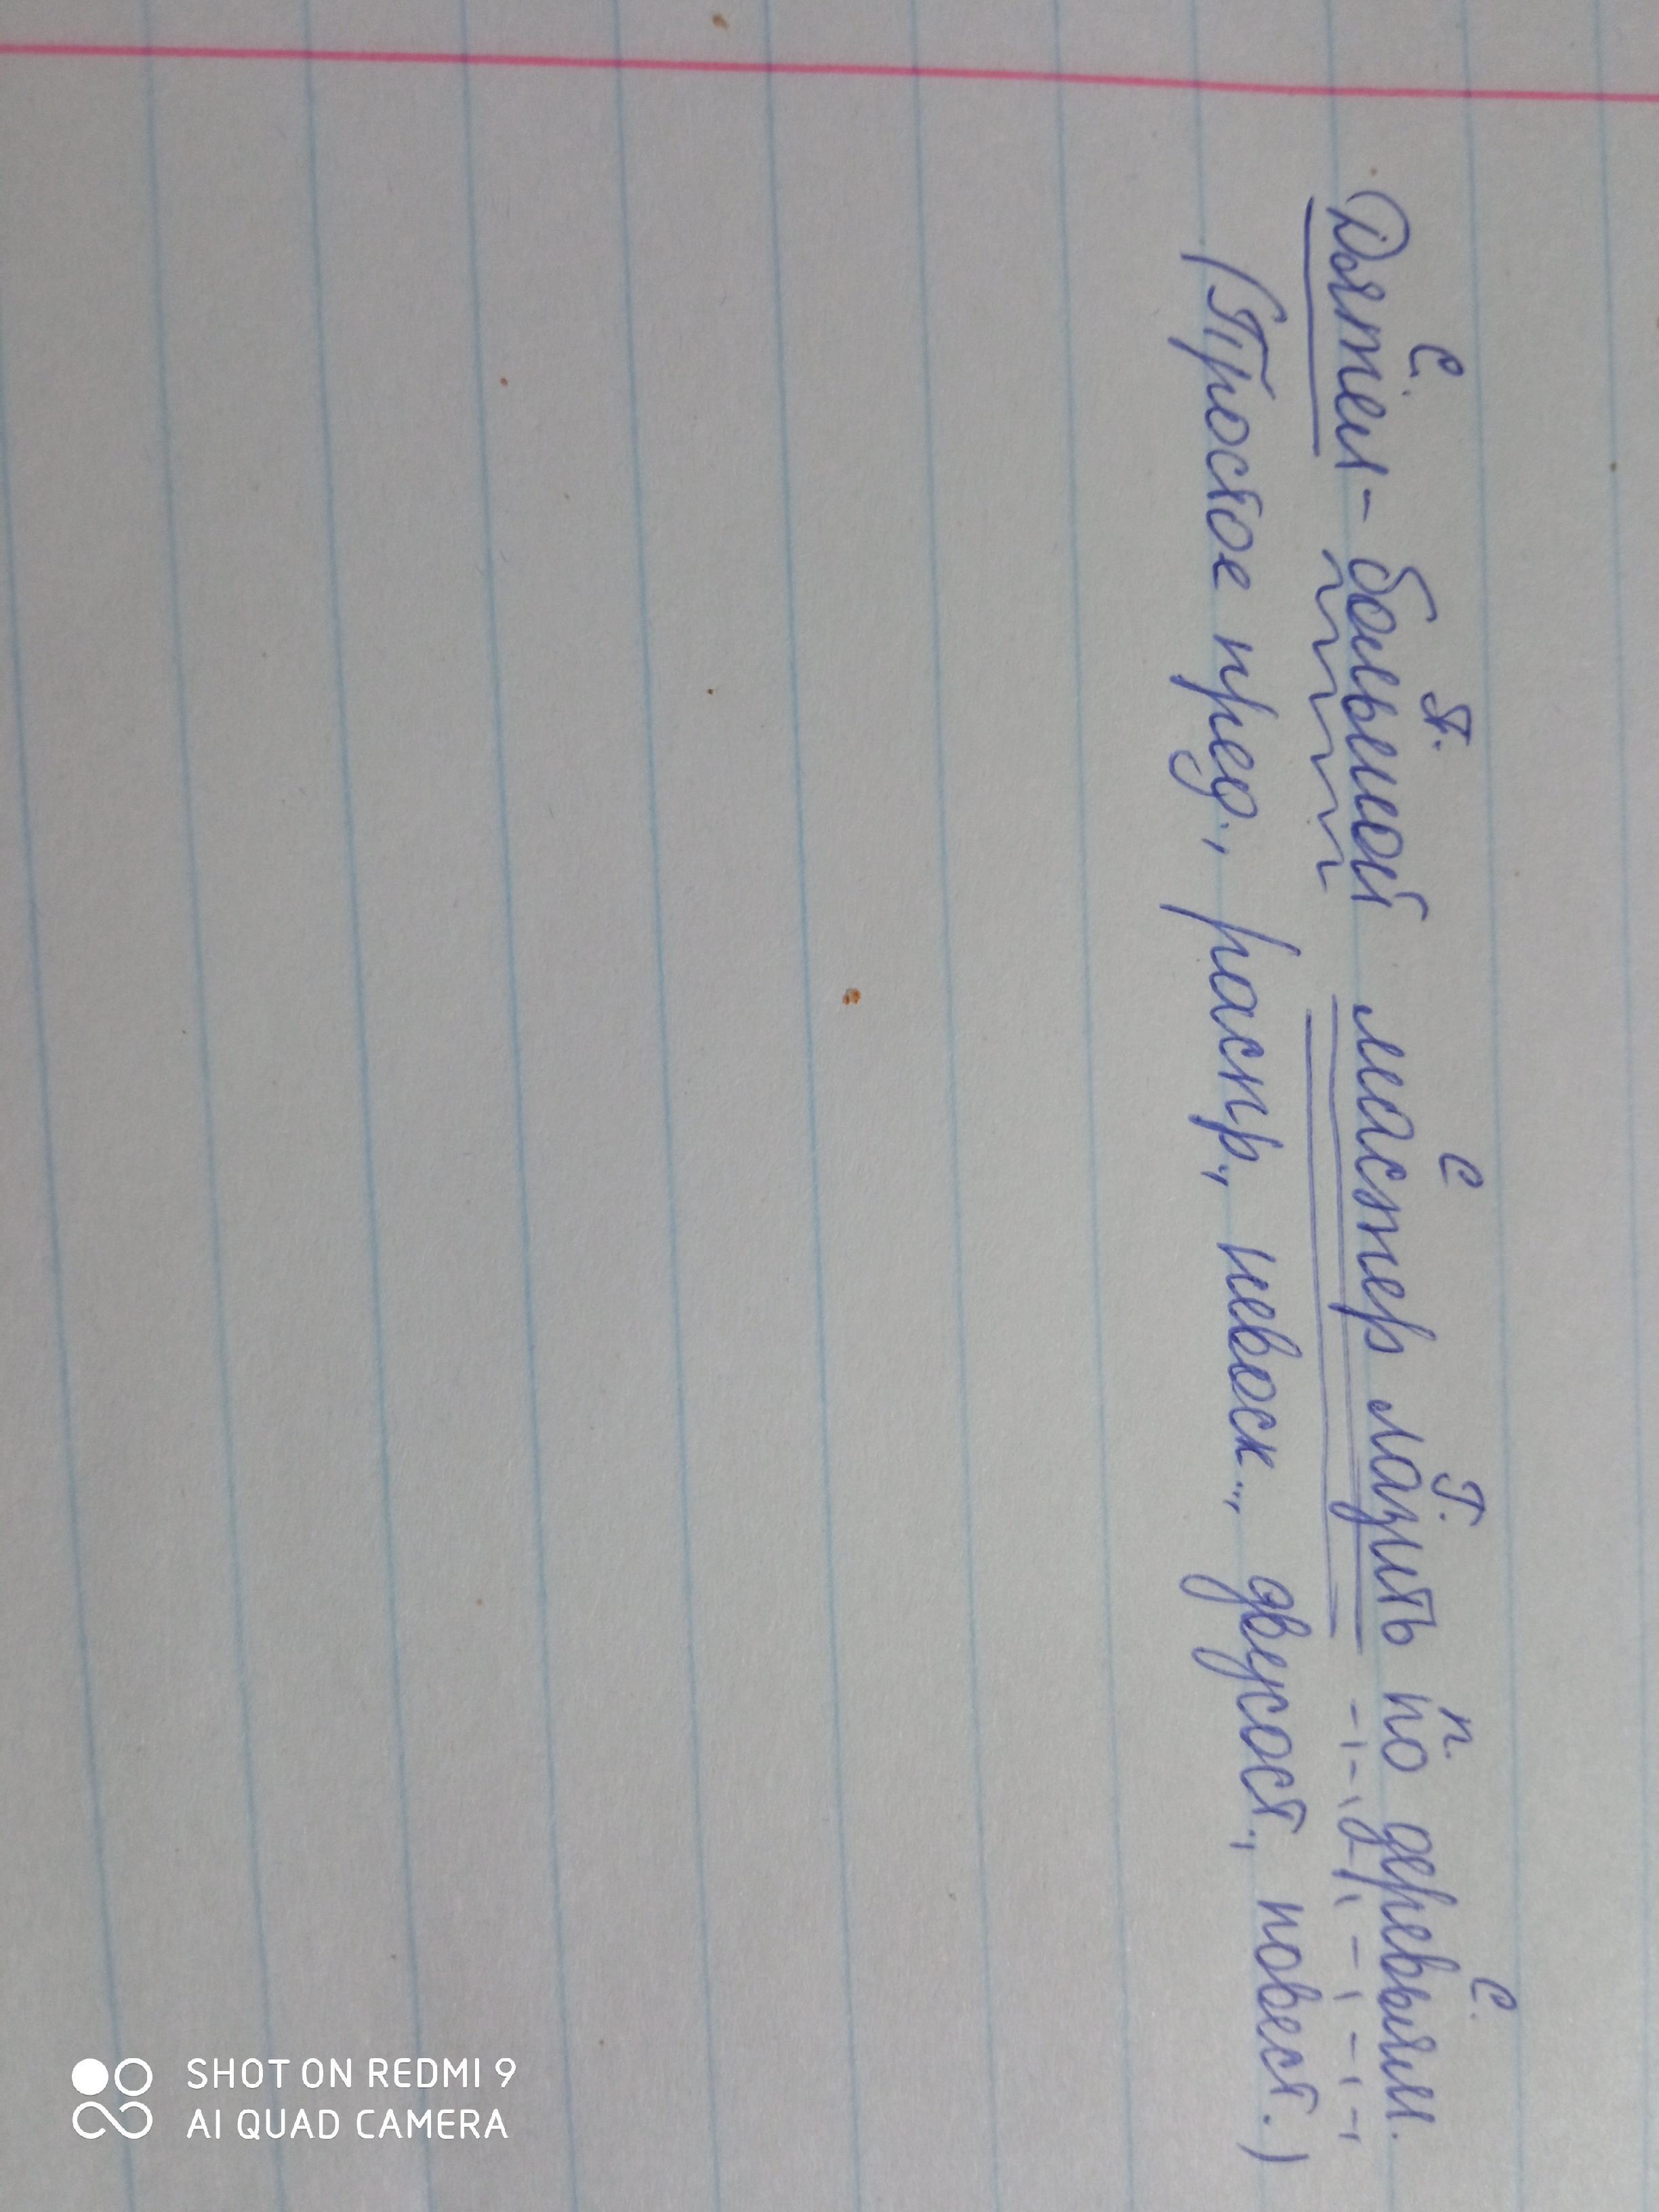 С. П. С Г. п. С.
Дятел - большой мастер лазить по деревьям.
(Простое пред., распр., невоск., двусост., повест.)
SHOT ON REDMI 9
AI QUAD CAMERA